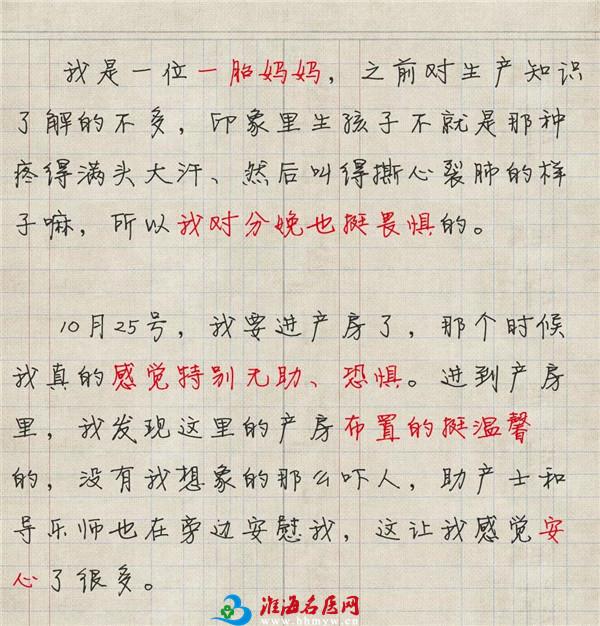 我是一位一胎妈妈，之前对生产知识
了解的不多，印象里生孩子不就是那种
疼得满头大汗、然后叫得撕心裂肺的样
子嘛，所以我对分娩也挺畏惧的。
10月25号，我要进产房了，那个时候
我真的感觉特别无助、恐惧。进到产房
里，我发现这里的产房布置的挺温馨
的，没有我想象的那么吓人，助产士和
导乐师也在旁边安慰我，这让我感觉安
心了很多。
淮海名医网
www.hhmyw.cn